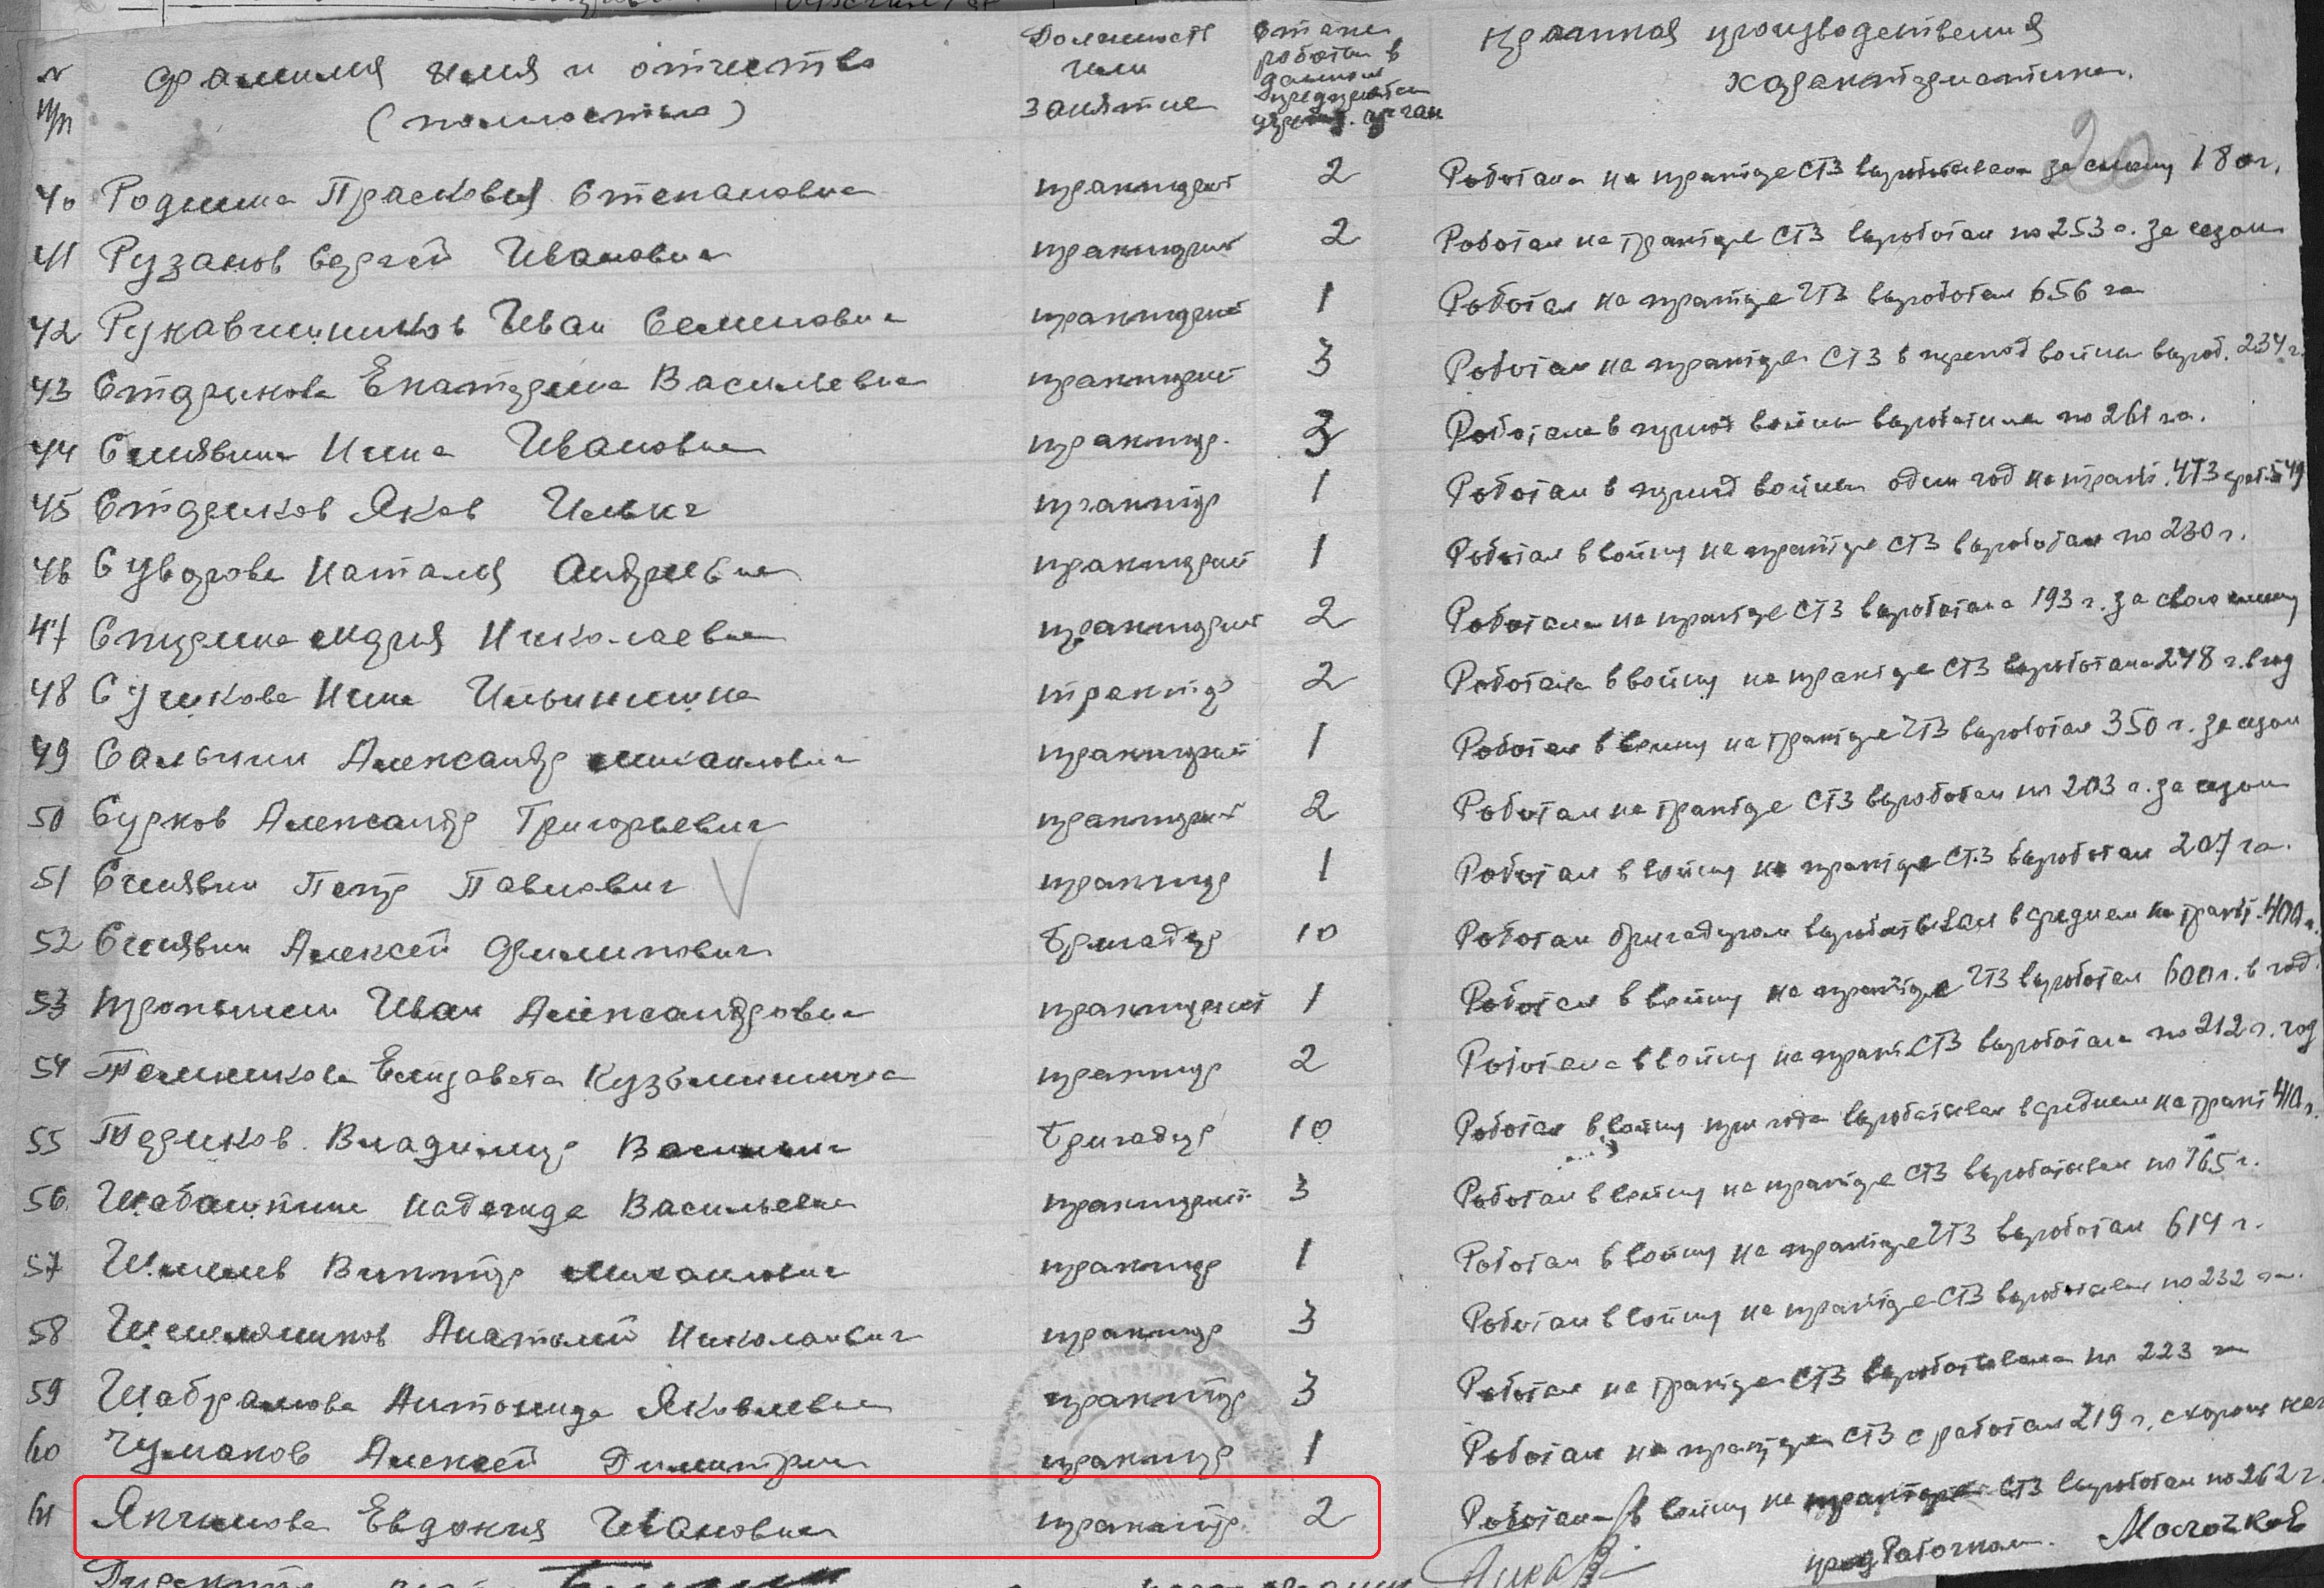 № п/п Фамилия имя и отчество (полностью) Должность или занятие Стаж работы в данном предприятии Краткая производственная характеристика.
40 Родина Прасковья Степановна тракторист 2 Работала на тракторе СТЗ вырабатывала за смену 180 г.
41 Рузанов Сергей Иванович тракторист 2 Работал на тракторе СТЗ выработал по 253 г. за сезон
42 Рукавишников Иван Семенович тракторист 1 Работал на тракторе ЧТЗ выработал 656 га
43 Старикова Екатерина Васильевна тракторист 3 Работал на тракторе СТЗ в период войны выроб. 234 г.
44 Синявина Нина Ивановна трактор. 3 Работала в период войны выработала по 261 га.
45 Стариков Яков Ильич трактор 1 Работал в период войны один год на тракт. ЧТЗ 549
46 Суворова Наталья Андреевна тракторист 1 Работал в войну на тракторе СТЗ выработал по 230 г.
47 Спирина Мария Николаевна тракторист 2 Работала на тракторе СТЗ выработала 193 г. за свою смену
48 Сучкова Нина Ильинична трактор 2 Работала в войну на тракторе СТЗ выработала 248 г. в год
49 Сальник Александр Михайлович тракторист 1 Работал в войну на тракторе ЧТЗ выработал 350 г. за сезон
50 Сурков Александр Григорьевич тракторист 2 Работал на тракторе СТЗ выработал по 203 г. за сезон
51 Синявин Петр Павлович трактор 1 Работал в войну на тракторе СТЗ выработал 207 га.
52 Синявин Алексей Филиппович Бригадир 10 Работал бригадиром вырабатывал в среднем на тракт. 400 г.
53 Тропынин Иван Александрович тракторист 1 Работал в войну на тракторе ЧТЗ выработал 600 г. в год
54 Темникова Елизавета Кузьминична трактор 2 Работала в войну на тракт. СТЗ выработала по 212 г. год
55 Териков Владимир Васильич Бригадир 10 Работал в войну три года вырабатывал в среднем на тракт 410 г.
56 Шабашкина Надежда Васильевна тракторист 3 Работал в войну на тракторе СТЗ вырабатывал по 165 г.
57 Виктор Михайлович трактор 1 Работал в войну на тракторе ЧТЗ выработал 619 г.
58 Анатолий Николаевич трактор 3 Работал в войну на тракторе СТЗ вырабатывал по 232 га.
59 Шабрамова Антонида Яковлевна трактор 3 Работал на тракторе СТЗ вырабатывала по 223 га
60 Чумаков Алексей Димитрич трактор 1 Работал на тракторе СТЗ сработал 219 г.
61 Япчинова Евдокия Ивановна трактор. 2 Работала в войну на тракторе СТЗ выработал по 262 г.
пред Рабочком. Молочков